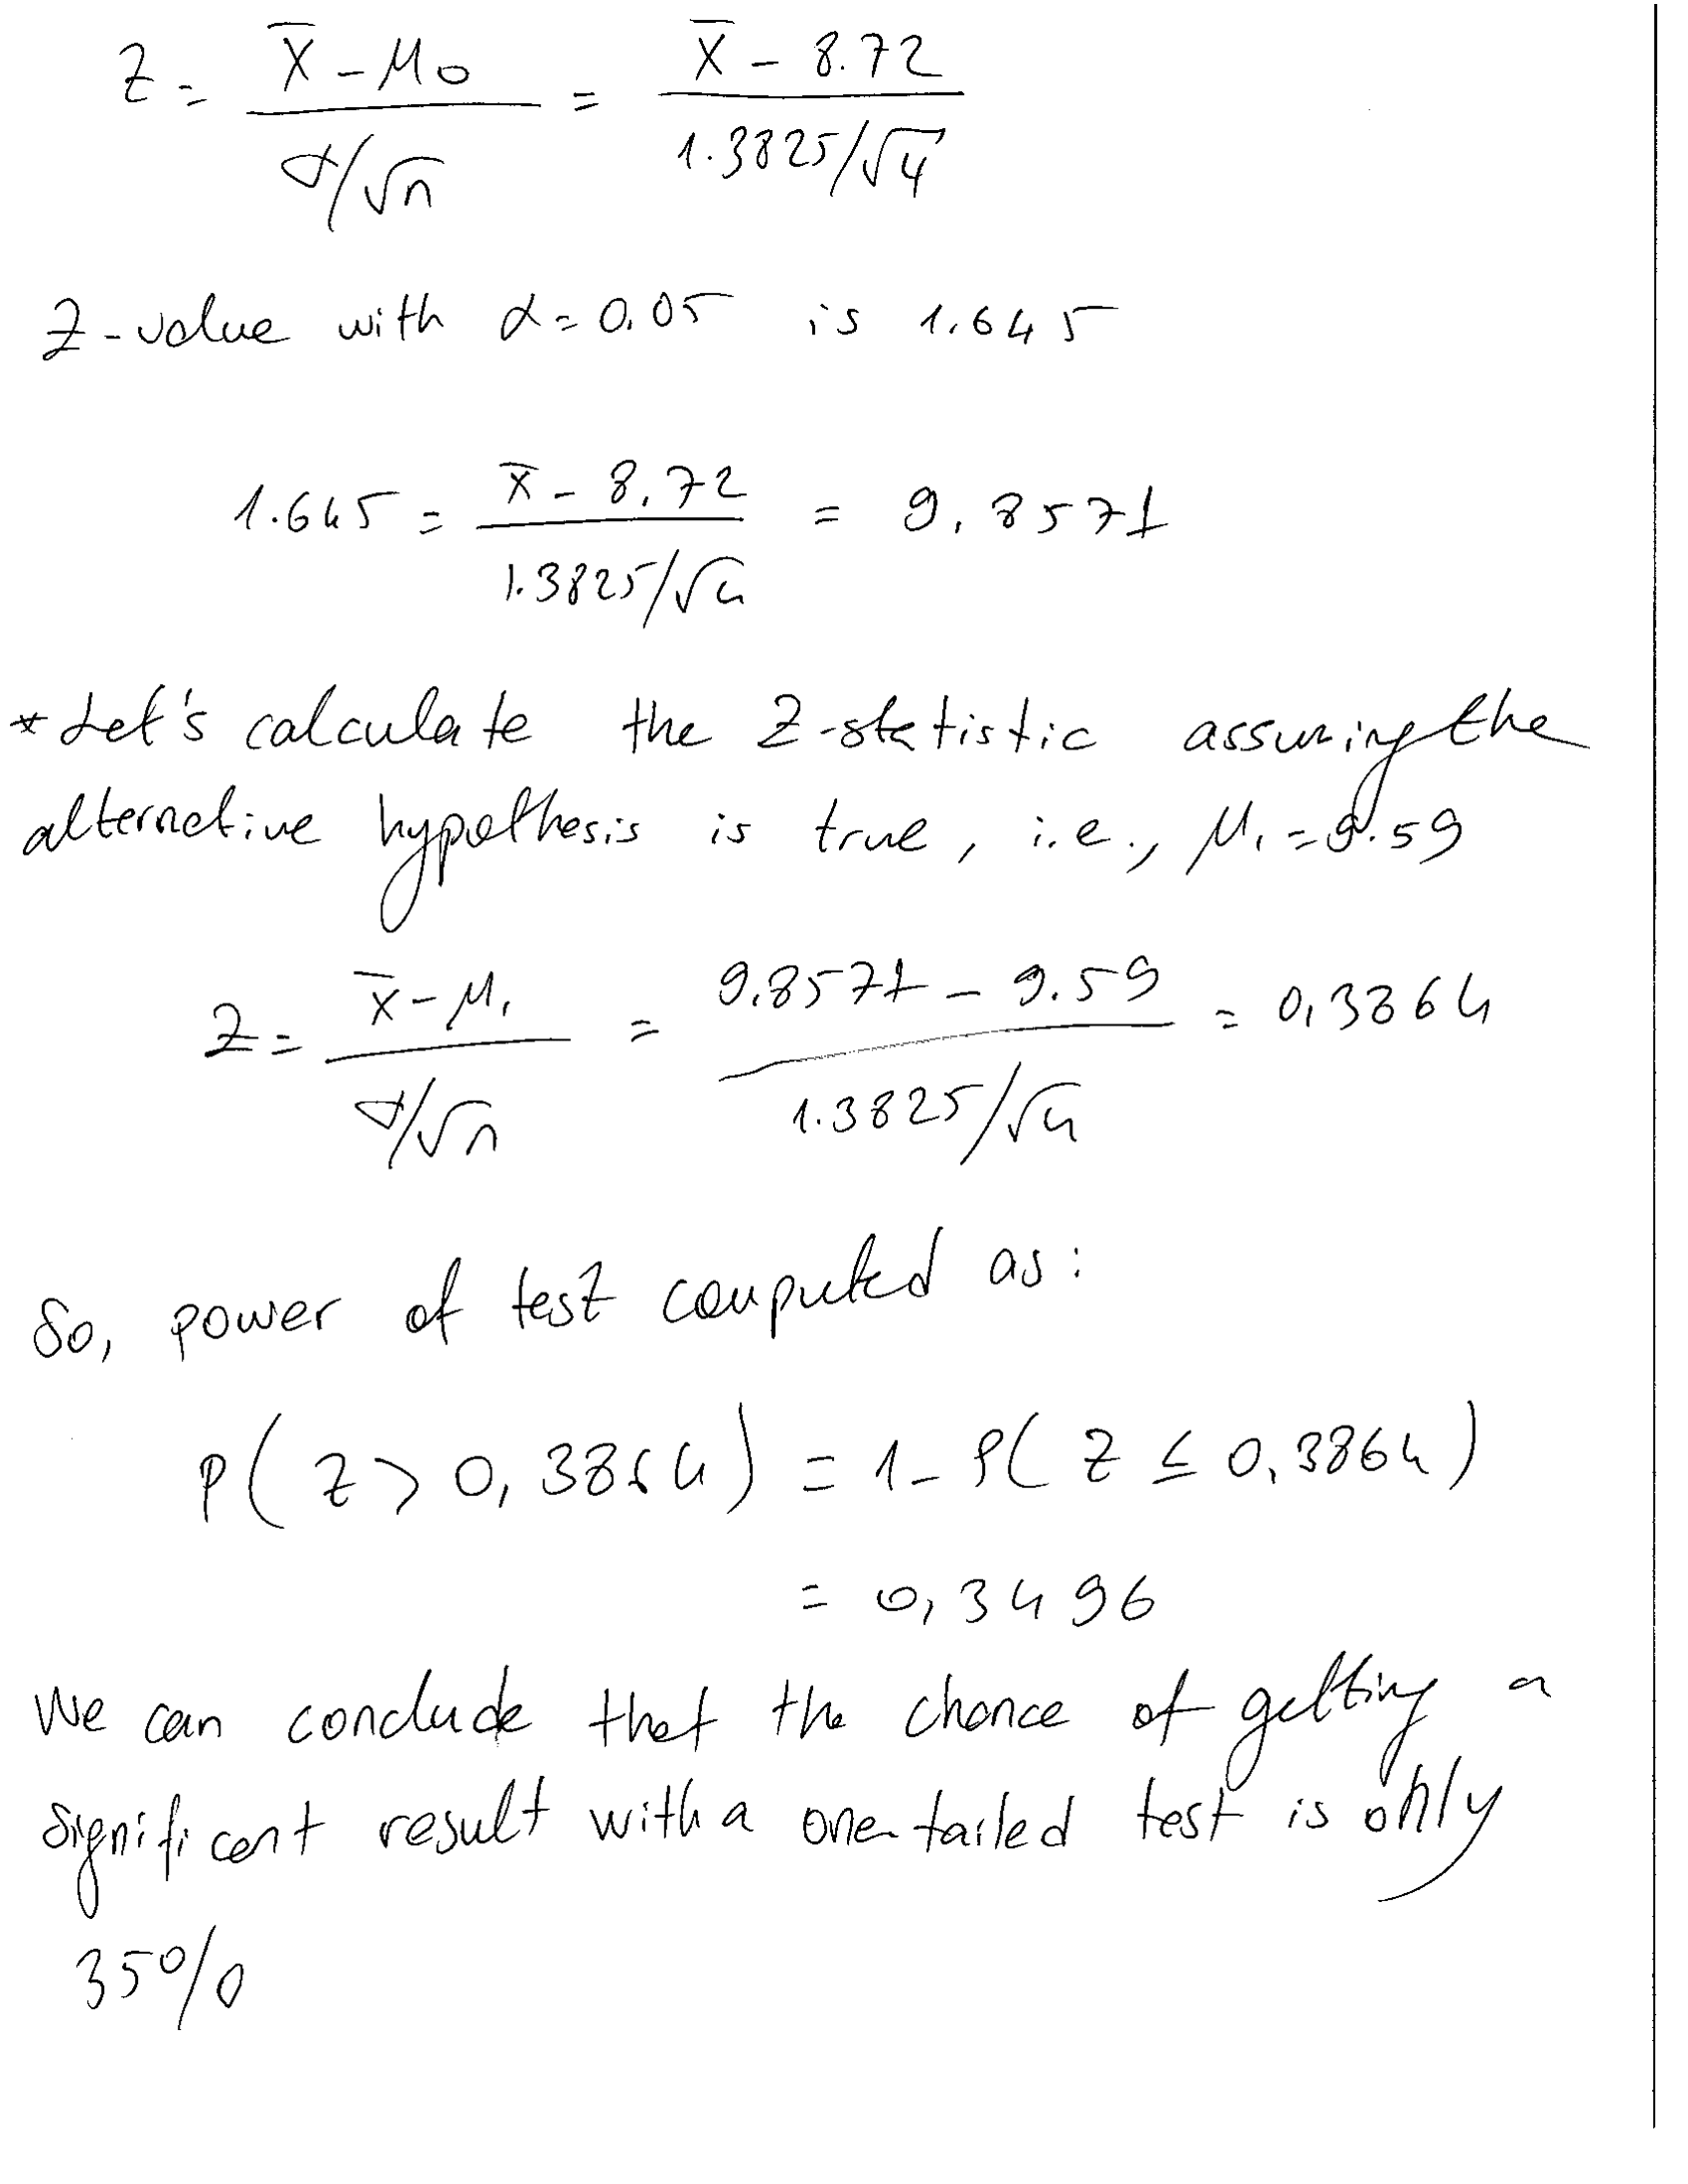 Z = (X̄ - μ0) / (σ/√n) = (X̄ - 8.72) / (1.3825/√4)
Z-value with α=0.05 is 1.645
1.645 = (x̄ - 8.72) / (1.3825/√4) = 9.8571
* Let's calculate the Z-statistic assuming the
alternative hypothesis is true, i.e., μ1=9.59
Z = (x̄ - μ1) / (σ/√n) = (9.8571 - 9.59) / (1.3825/√4) = 0,3864
So, power of test computed as:
P(Z > 0,3864) = 1- P(Z ≤ 0,3864)
= 0,3496
We can conclude that the chance of getting a
significant result with a one-tailed test is only
35%